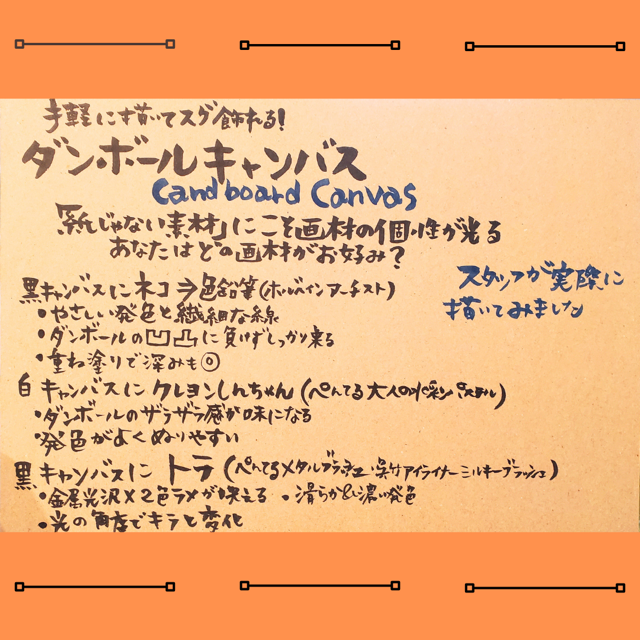 手軽に描いてスグ飾れる!
ダンボールキャンバス
Candboard Canvas
「紙じゃない素材」にこそ画材の個性が光る
あなたはどの画材がお好み?
スタッフが実際に
描いてみました
黒キャンバスにネコ⇒色鉛筆(ホルベインアーチスト)
・やさしい発色と繊細な線
・ダンボールの凹凸に負けずしっかり来る
・重ね塗りで深みも◎
白キャンバスにクレヨンしんちゃん(ぺんてる大人の水彩パステル)
・ダンボールのザラザラ感が味になる
・発色がよくぬりやすい
黒キャンバスにトラ(ぺんてるメタルブラッシュ・呉竹アイライナーミルキーブラッシュ)
・金属光沢×2色ラメが映える ・滑らか&濃い発色
・光の角度でキラと変化